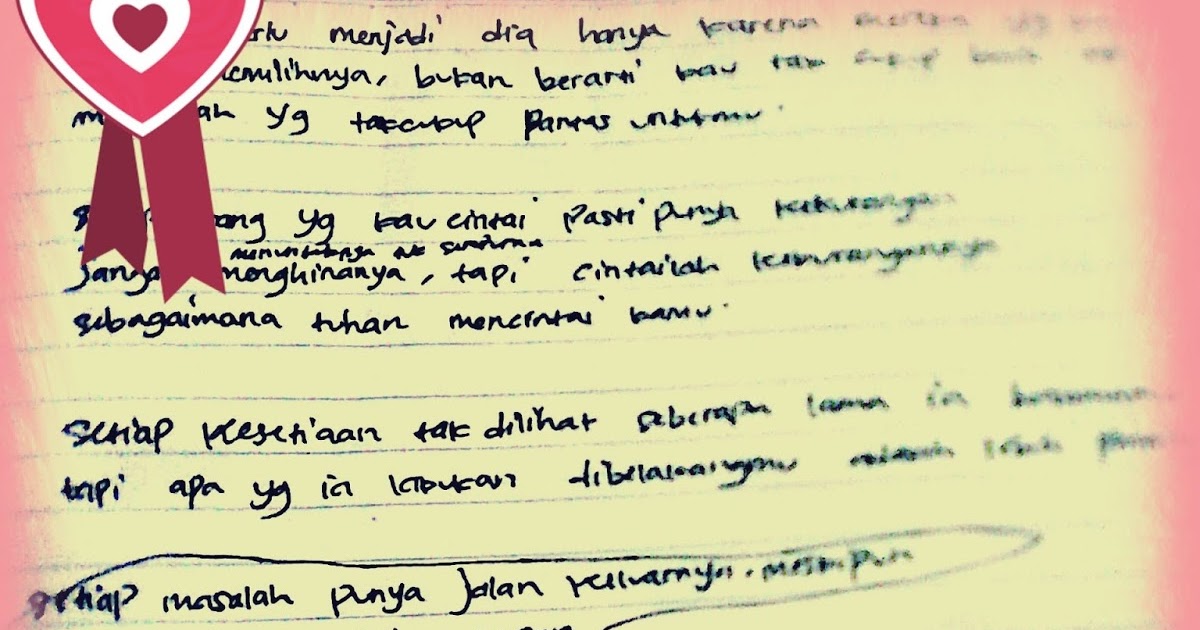 menjadi dia hanya karena mereka yg
memilihnya, bukan berarti kau tak cukup baik
yg takcukup pantas untukmu.
orang yg kau cintai pasti punya kekurangan
menuntutnya tuk sempurna
jangan menghinanya, tapi cintailah kekurangannya
sebagaimana tuhan mencintai kamu.
Setiap kesetiaan tak dilihat seberapa lama ia bersamamu
tapi apa yg ia lakukan dibelakangmu adalah lebih
setiap masalah punya jalan keluarnya. meskipun